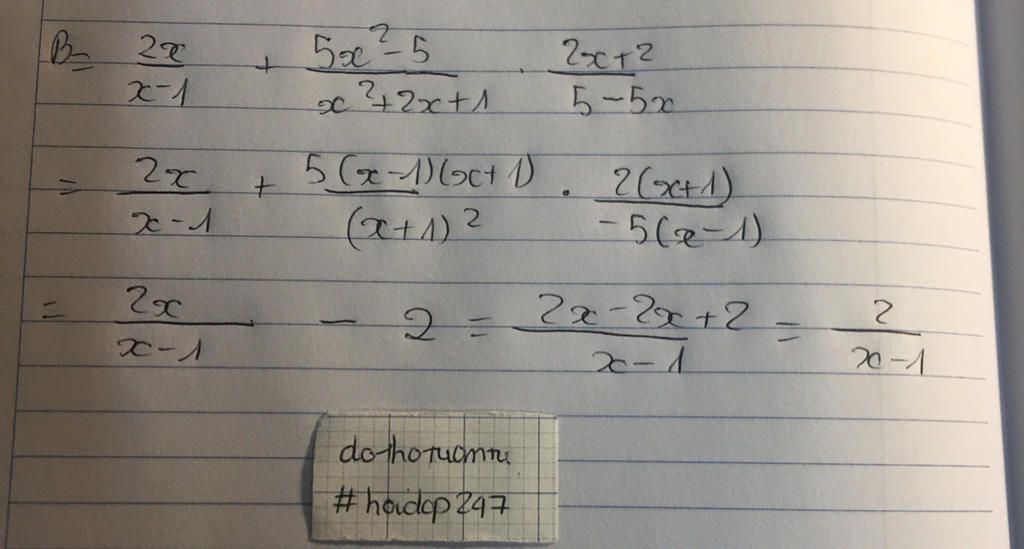 B= 2x/(x-1) + (5x²-5)/(x²+2x+1) . (2x+2)/(5-5x)
= 2x/(x-1) + 5(x-1)(x+1)/(x+1)² . 2(x+1)/-5(x-1)
= 2x/(x-1) - 2 = (2x-2x+2)/(x-1) = 2/(x-1)
#hoidap247